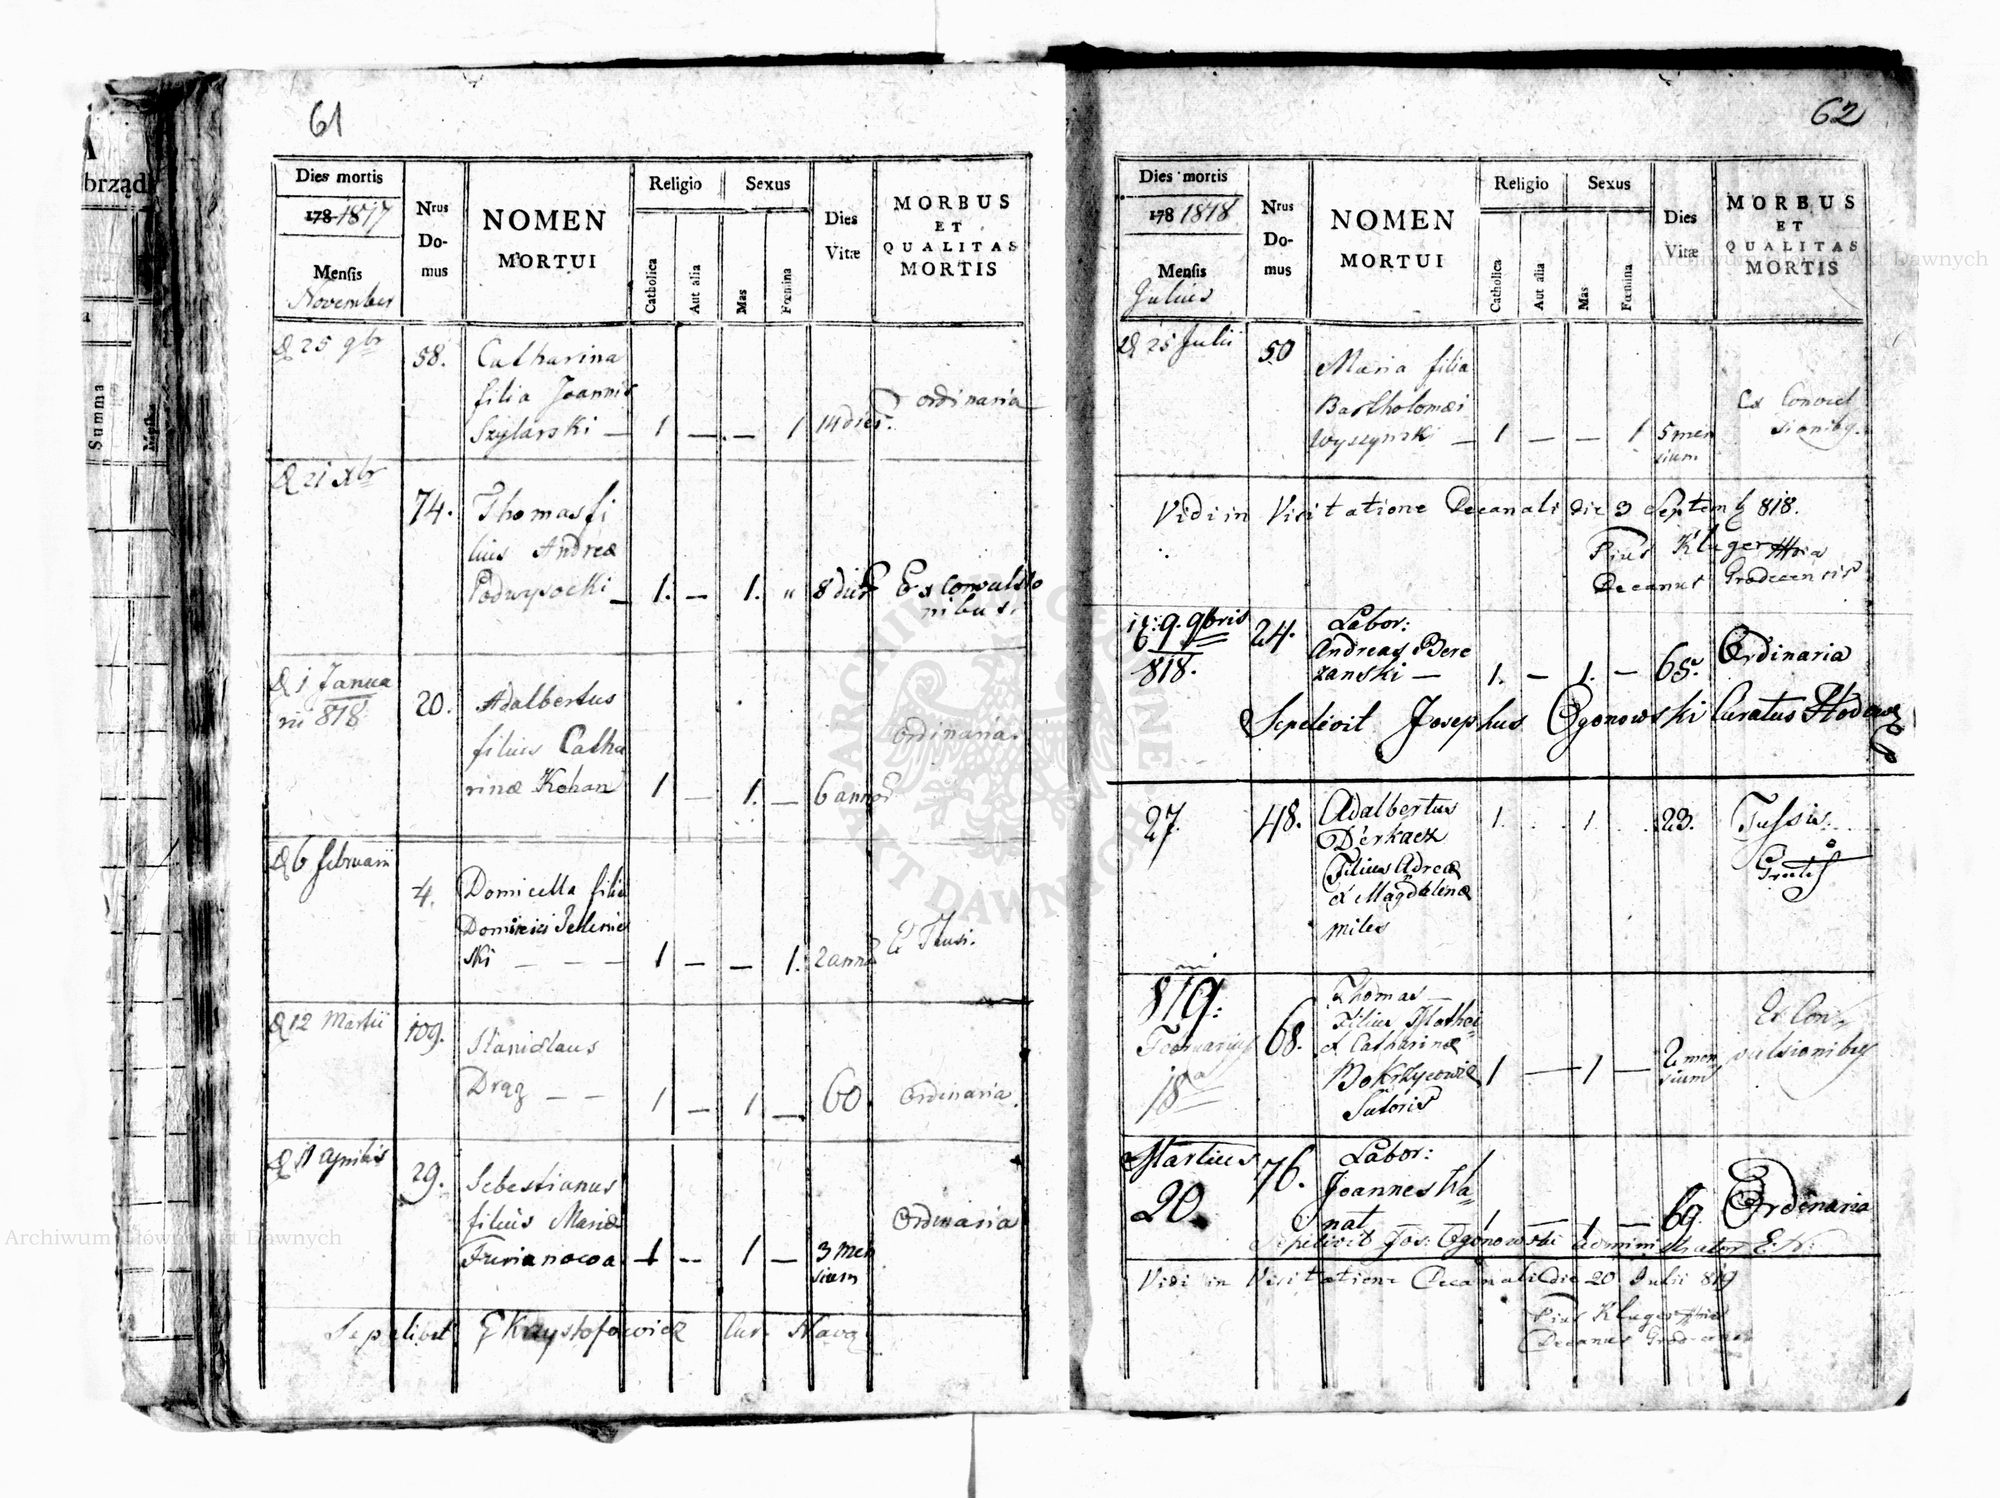 61
Dies mortis
178 1817
Mensis
November
Nrus
Do-
mus
NOMEN
MORTUI
Religio
Catholica
Aut alia
Sexus
Mas
Fœmina
Dies
Vitæ
MORBUS
ET
QUALITAS
MORTIS
25 9br
58.
Catharina
filia Joannis
Szylarski — 1 — — 1 14 dies.
ordinaria
21 Xbr
74.
Thomas fi
lius Andreæ
Podwysocki — 1. — 1. " 8 dies
Ex convulsio
nibus.
1 Janua
rii 818
20.
Adalbertus
filius Catha
rinæ Kohan 1 — 1. — 6 annos
ordinaria.
6 februarii
4.
Domicella filia
Dominici
ski — — — 1 — — 1. 2 annos
E Tussi.
12 Martii
109.
Stanislaus
Drąg — — 1 — 1 — 60.
Ordinaria.
11 Aprilis
29.
Sebestianus
filius Mariæ
1 -- 1 — 3 Men
sium
Ordinaria
Sepelivit Krzysztofowicz Cur.
62
Dies mortis
178 1818
Mensis
Julius
Nrus
Do-
mus
NOMEN
MORTUI
Religio
Catholica
Aut alia
Sexus
Mas
Fœmina
Dies
Vitæ
MORBUS
ET
QUALITAS
MORTIS
25 Julii
50
Maria filia
Bartholomæi
Wyszynski — 1 — — 1 5 men
sium
Ex Convul
sionibq.
Vidi in Visitatione Decanali die 3 Septemb 818.
Pius Kluger
Decanus Grodecensis
9. 9bris
818.
24.
Labor:
Andreas Bere
zanski — 1. — 1. — 65.
Ordinaria
Sepelivit Josephus Ogonowski Curatus
27.
48.
Adalbertus
Derkacz
Filius Adreæ
et Magdalenæ
miles
1. 1. 23.
Tussis.
819.
Februarius
18a
68.
Thomas
Filius Mathei
et Catharinæ
1 — 1 — 2 men
sium
Sutoris
Ex Con
vulsionibus
Martius
20.
76.
Labor:
Joannes Ha
nat 1 — 1 — 69.
Ordinaria
Sepelivit Jos: Ogonowski Administrator
Vidi in Visitatione Decanali die 20 Julii 819
Pius Kluger
Decanus
brząd
Summa
Archiwum Główne Akt Dawnych
Archiwum Główne Akt Dawnych
ARCHIWUM GŁÓWNE AKT DAWNYCH